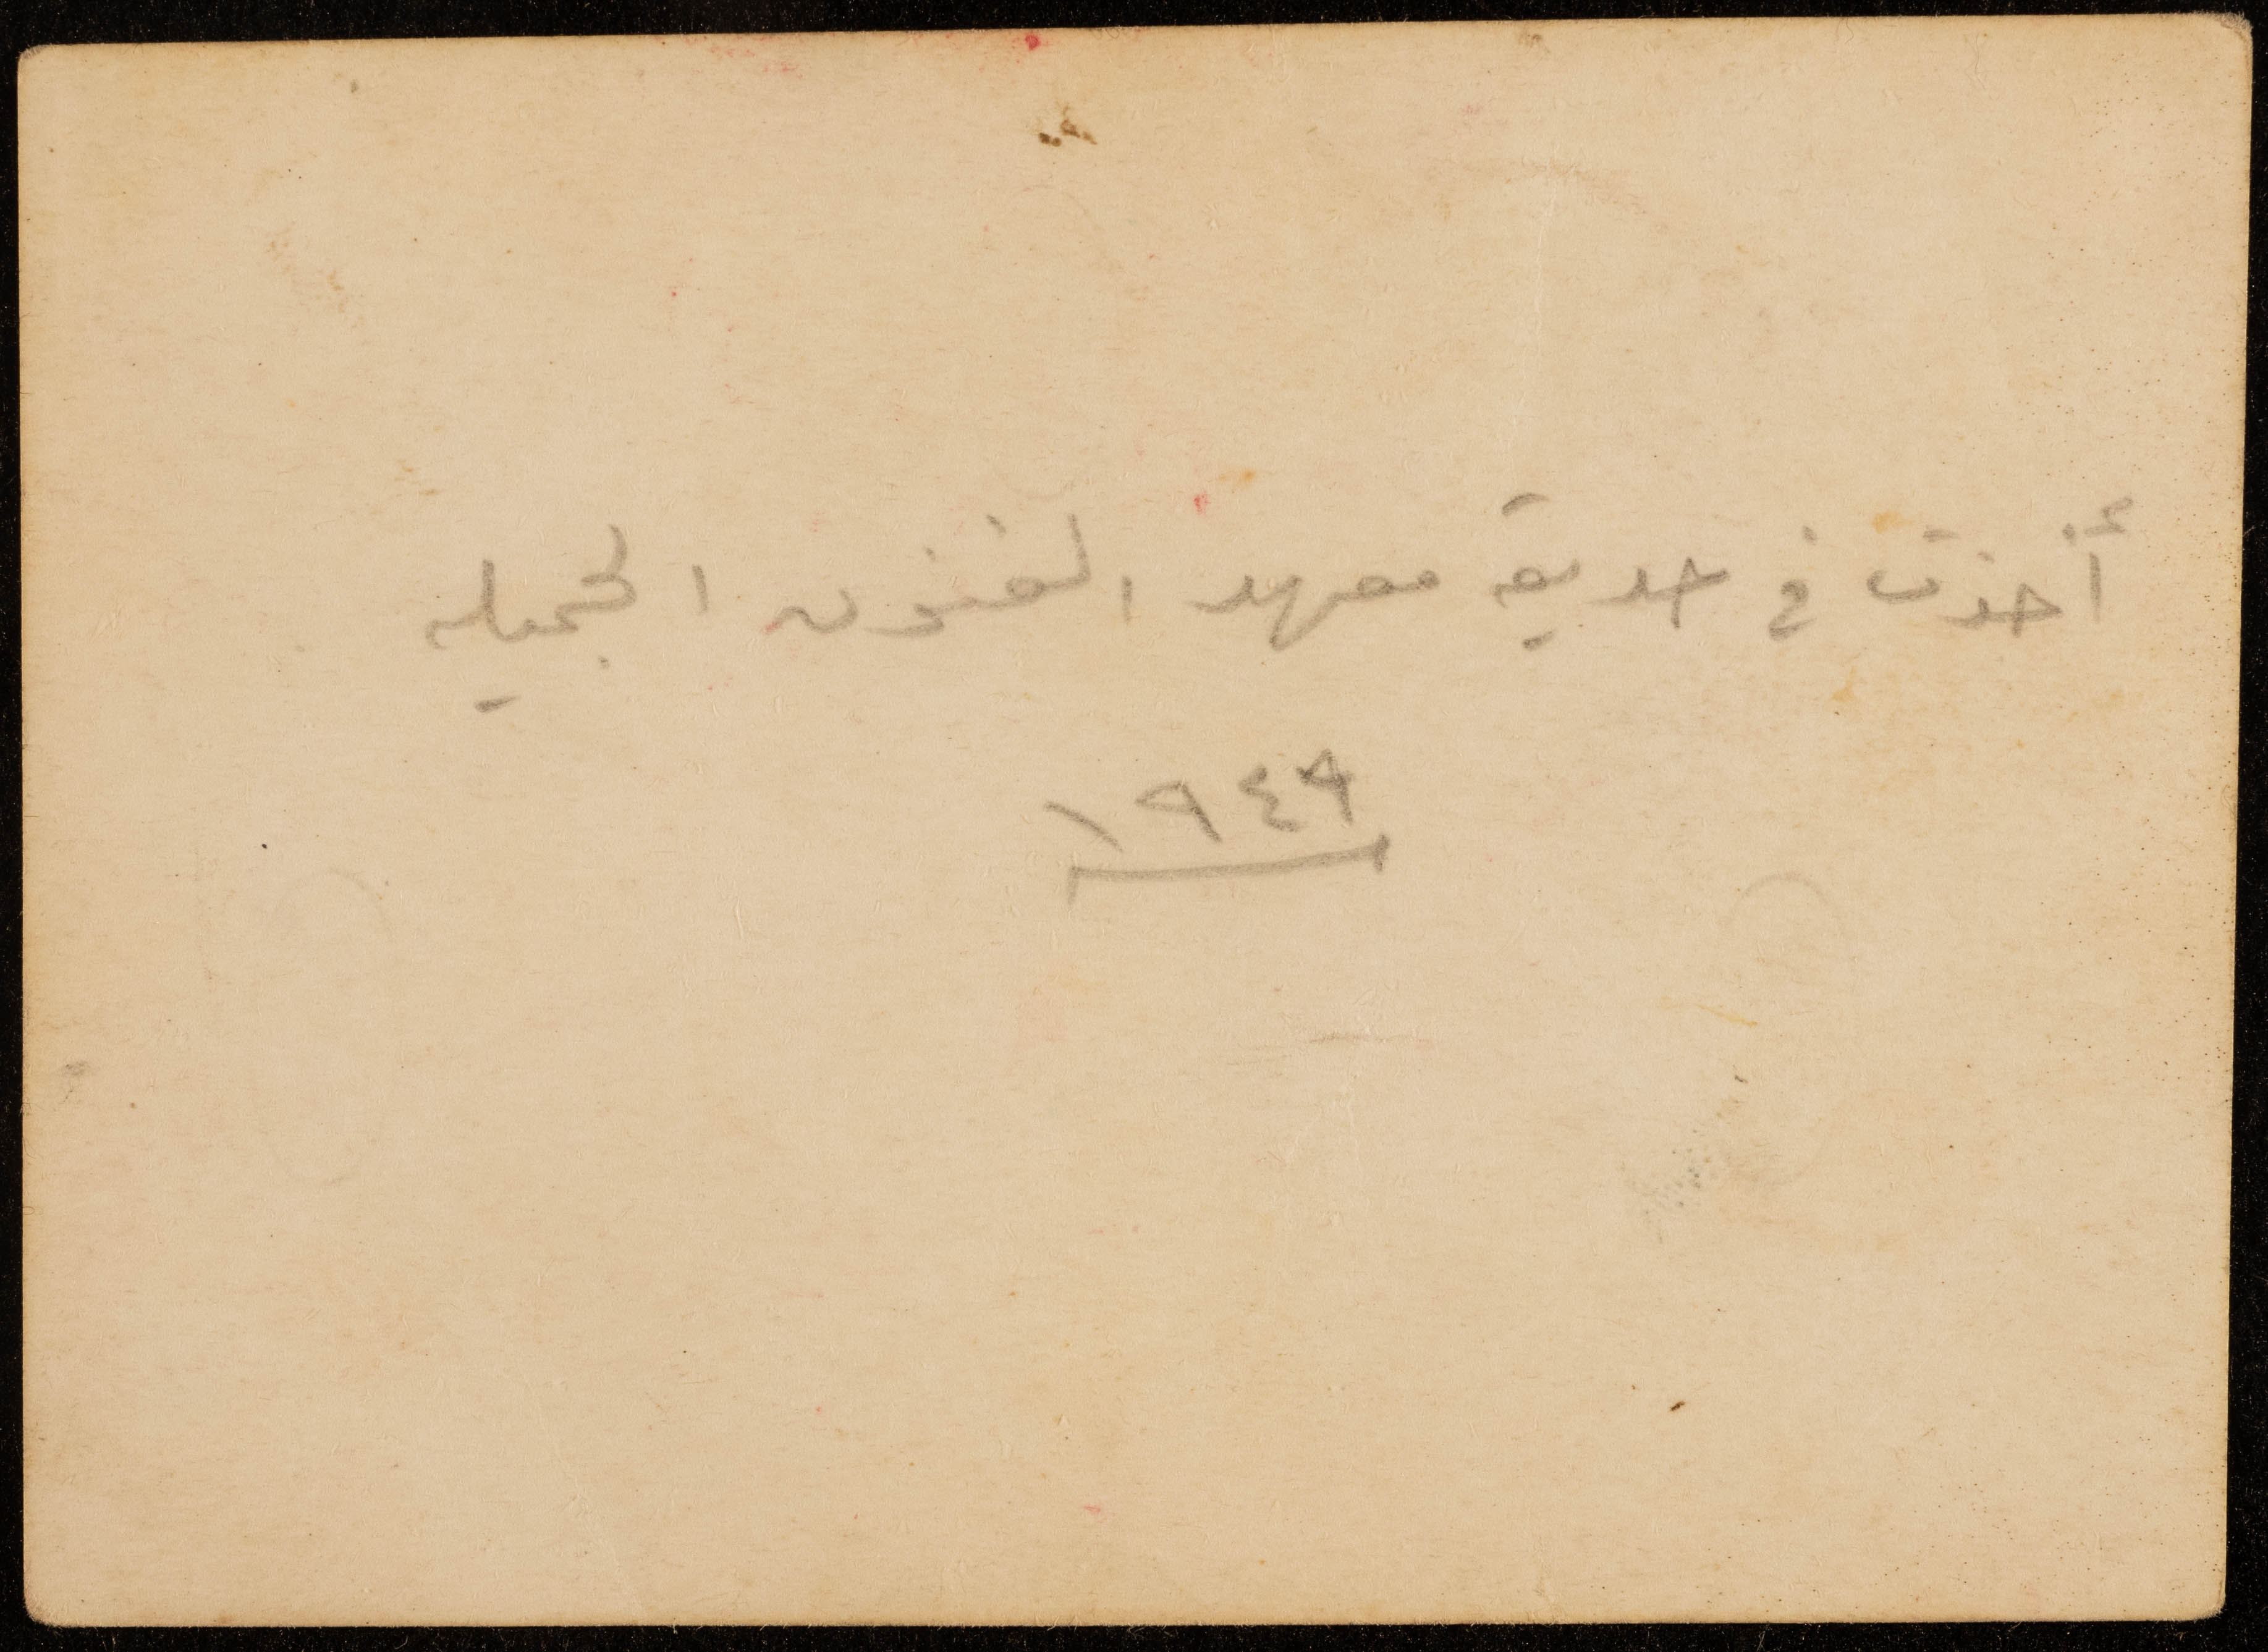 أُخذت في حديقة معهد الفنون الجميله
١٩٤٩